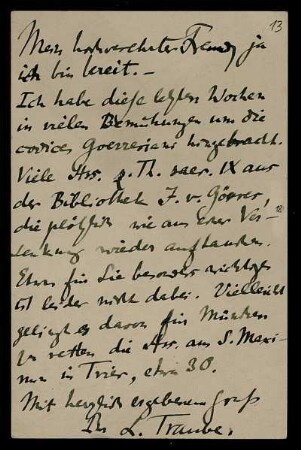 13
Mein hochverehrter Freund, ja
ich bin bereit. –
Ich habe diese letzten Wochen
in vielen Bemühungen um die
codices Goerresiani hingebracht.
Viele Hss. z. Th. saec. IX aus
der Bibliothek J. v. Görres,
die plötzlich wie aus einer Ver-
senkung wieder auftauchen.
Etwas für Sie besonders wichtiges
ist leider nicht dabei. Vielleicht
gelingt es davon für München
zu retten die Hss. aus S. Maxi-
min in Trier, etwa 30.
Mit herzlich ergebenem Gruß
Ihr L. Traube.